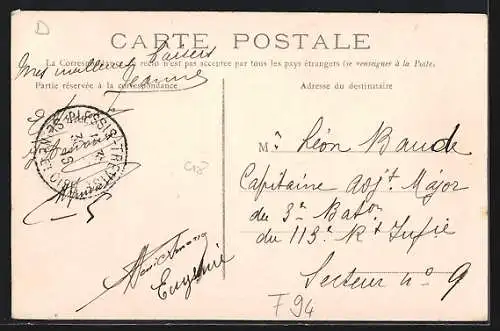 D
CARTE POSTALE
La Correspondance au recto n'est pas acceptée par tous les pays étrangers (se renseigner à la Poste)
Mes meilleurs baisers
Jeanne
Partie réservée à la correspondance
Adresse du destinataire
Mr Léon Baude
Capitaine Adjt Major
du 3e Baton
du 113e Rt Infie
Secteur no 9
Eugénie
F 94